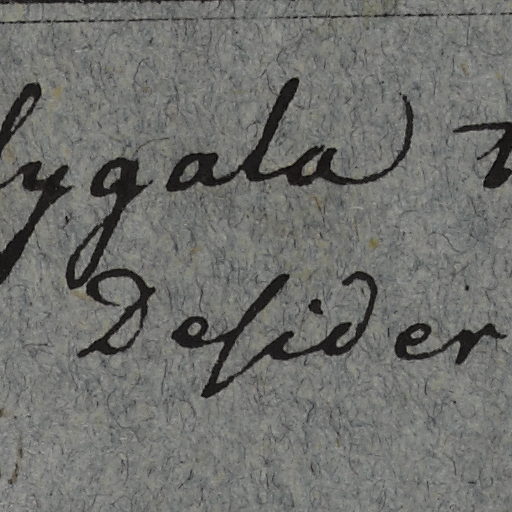 lygala
Deſider